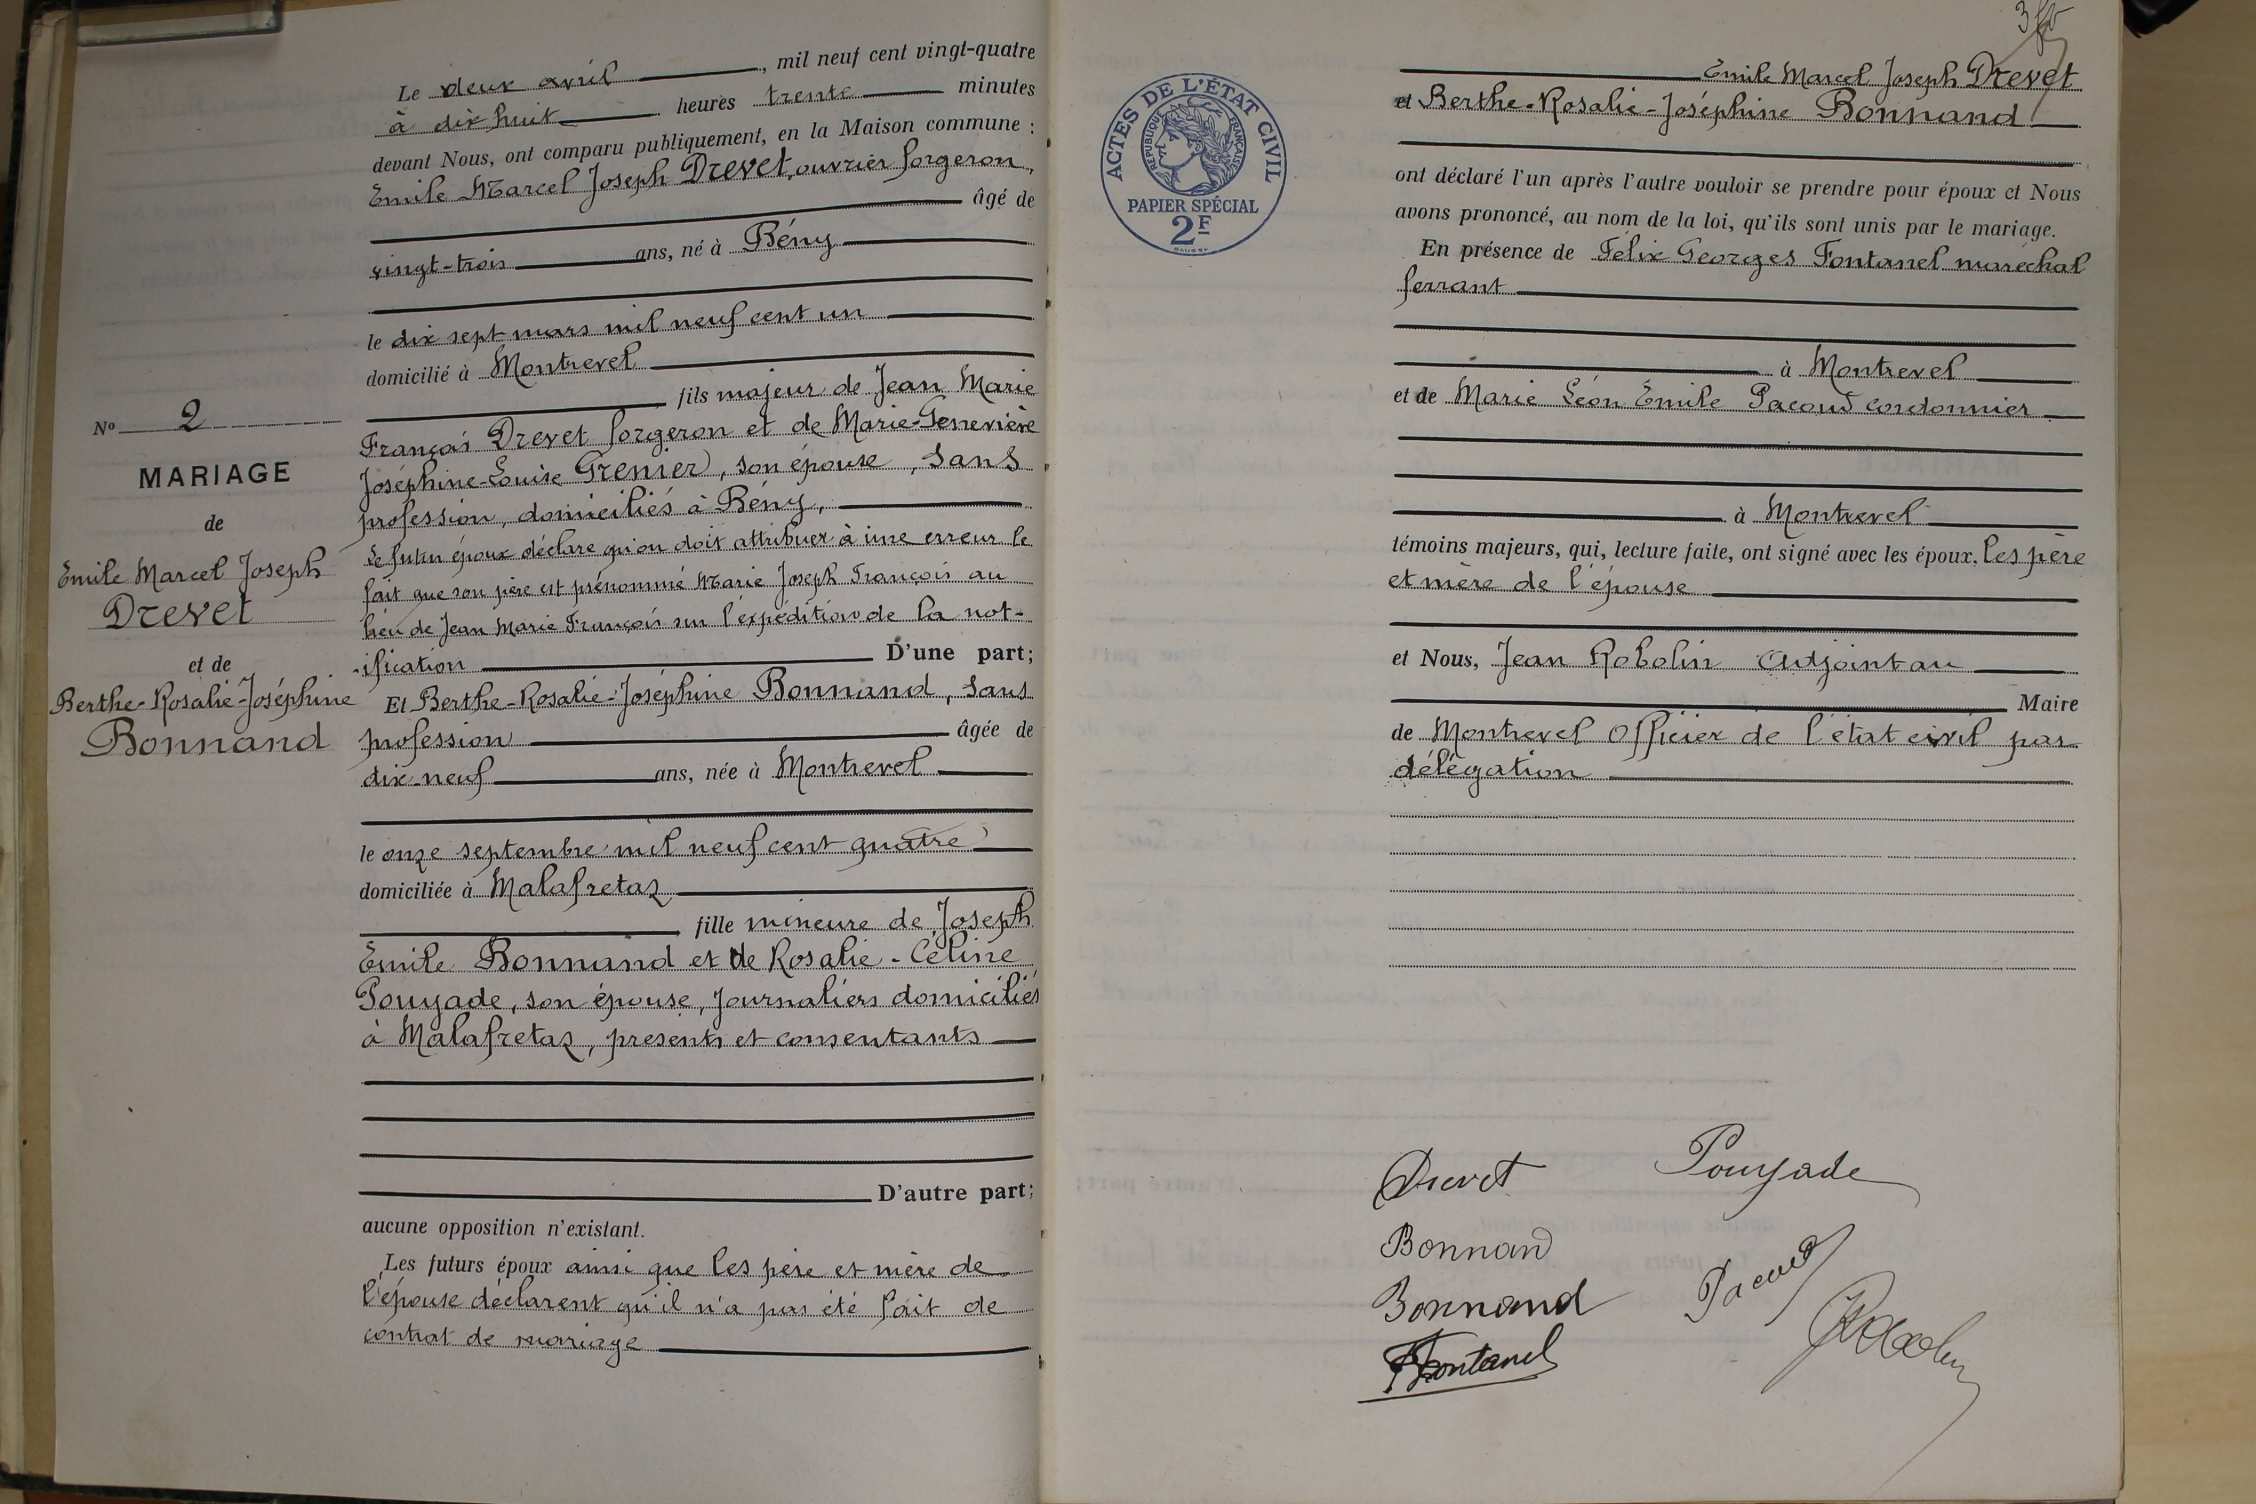 Le deux avril, mil neuf cent vingt-quatre
à dix huit heures trente minutes
devant Nous, ont comparu publiquement, en la Maison commune :
Emile Marcel Joseph Drevet, ouvrier forgeron,
âgé de
vingt-trois ans, né à Bény
le dix sept mars mil neuf cent un
domicilié à Montrevel
fils majeur de Jean Marie
François Drevet forgeron et de Marie-Geneviève
Joséphine-Louise Grenier, son épouse, sans
profession, domiciliés à Bény,
Le futur époux déclare qu'on doit attribuer à une erreur le
fait que son père est prénommé Marie Joseph François au
lieu de Jean Marie François sur l'expédition de la not-
-ification D'une part;
Et Berthe-Rosalie-Joséphine Bonnand, sans
profession âgée de
dix-neuf ans, née à Montrevel
le onze septembre mil neuf cent quatre
domiciliée à Malafretaz
fille mineure de Joseph
Emile Bonnand et de Rosalie-Céline
Pouyade, son épouse, journaliers domiciliés
à Malafretaz, présents et consentants
D'autre part;
aucune opposition n'existant.
Les futurs époux ainsi que les père et mère de
l'épouse déclarent qu'il n'a pas été fait de
contrat de mariage
Nº 2
MARIAGE
de
Emile Marcel Joseph
Drevet
et de
Berthe-Rosalie-Joséphine
Bonnand
ACTES DE L'ÉTAT CIVIL
RÉPUBLIQUE FRANÇAISE
PAPIER SPÉCIAL
2F
Emile Marcel Joseph Drevet
et Berthe-Rosalie-Joséphine Bonnand
ont déclaré l'un après l'autre vouloir se prendre pour époux et Nous
avons prononcé, au nom de la loi, qu'ils sont unis par le mariage.
En présence de Félix Georges Fontanel maréchal
ferrant
à Montrevel
et de Marie Léon Emile Pacoud cordonnier
à Montrevel
témoins majeurs, qui, lecture faite, ont signé avec les époux, les père
et mère de l'épouse
et Nous, Jean Robolin Adjoint au
Maire
de Montrevel Officier de l'état civil par
délégation
Drevet
Pouyade
Bonnand
Pacoud
Bonnand
Fontanel